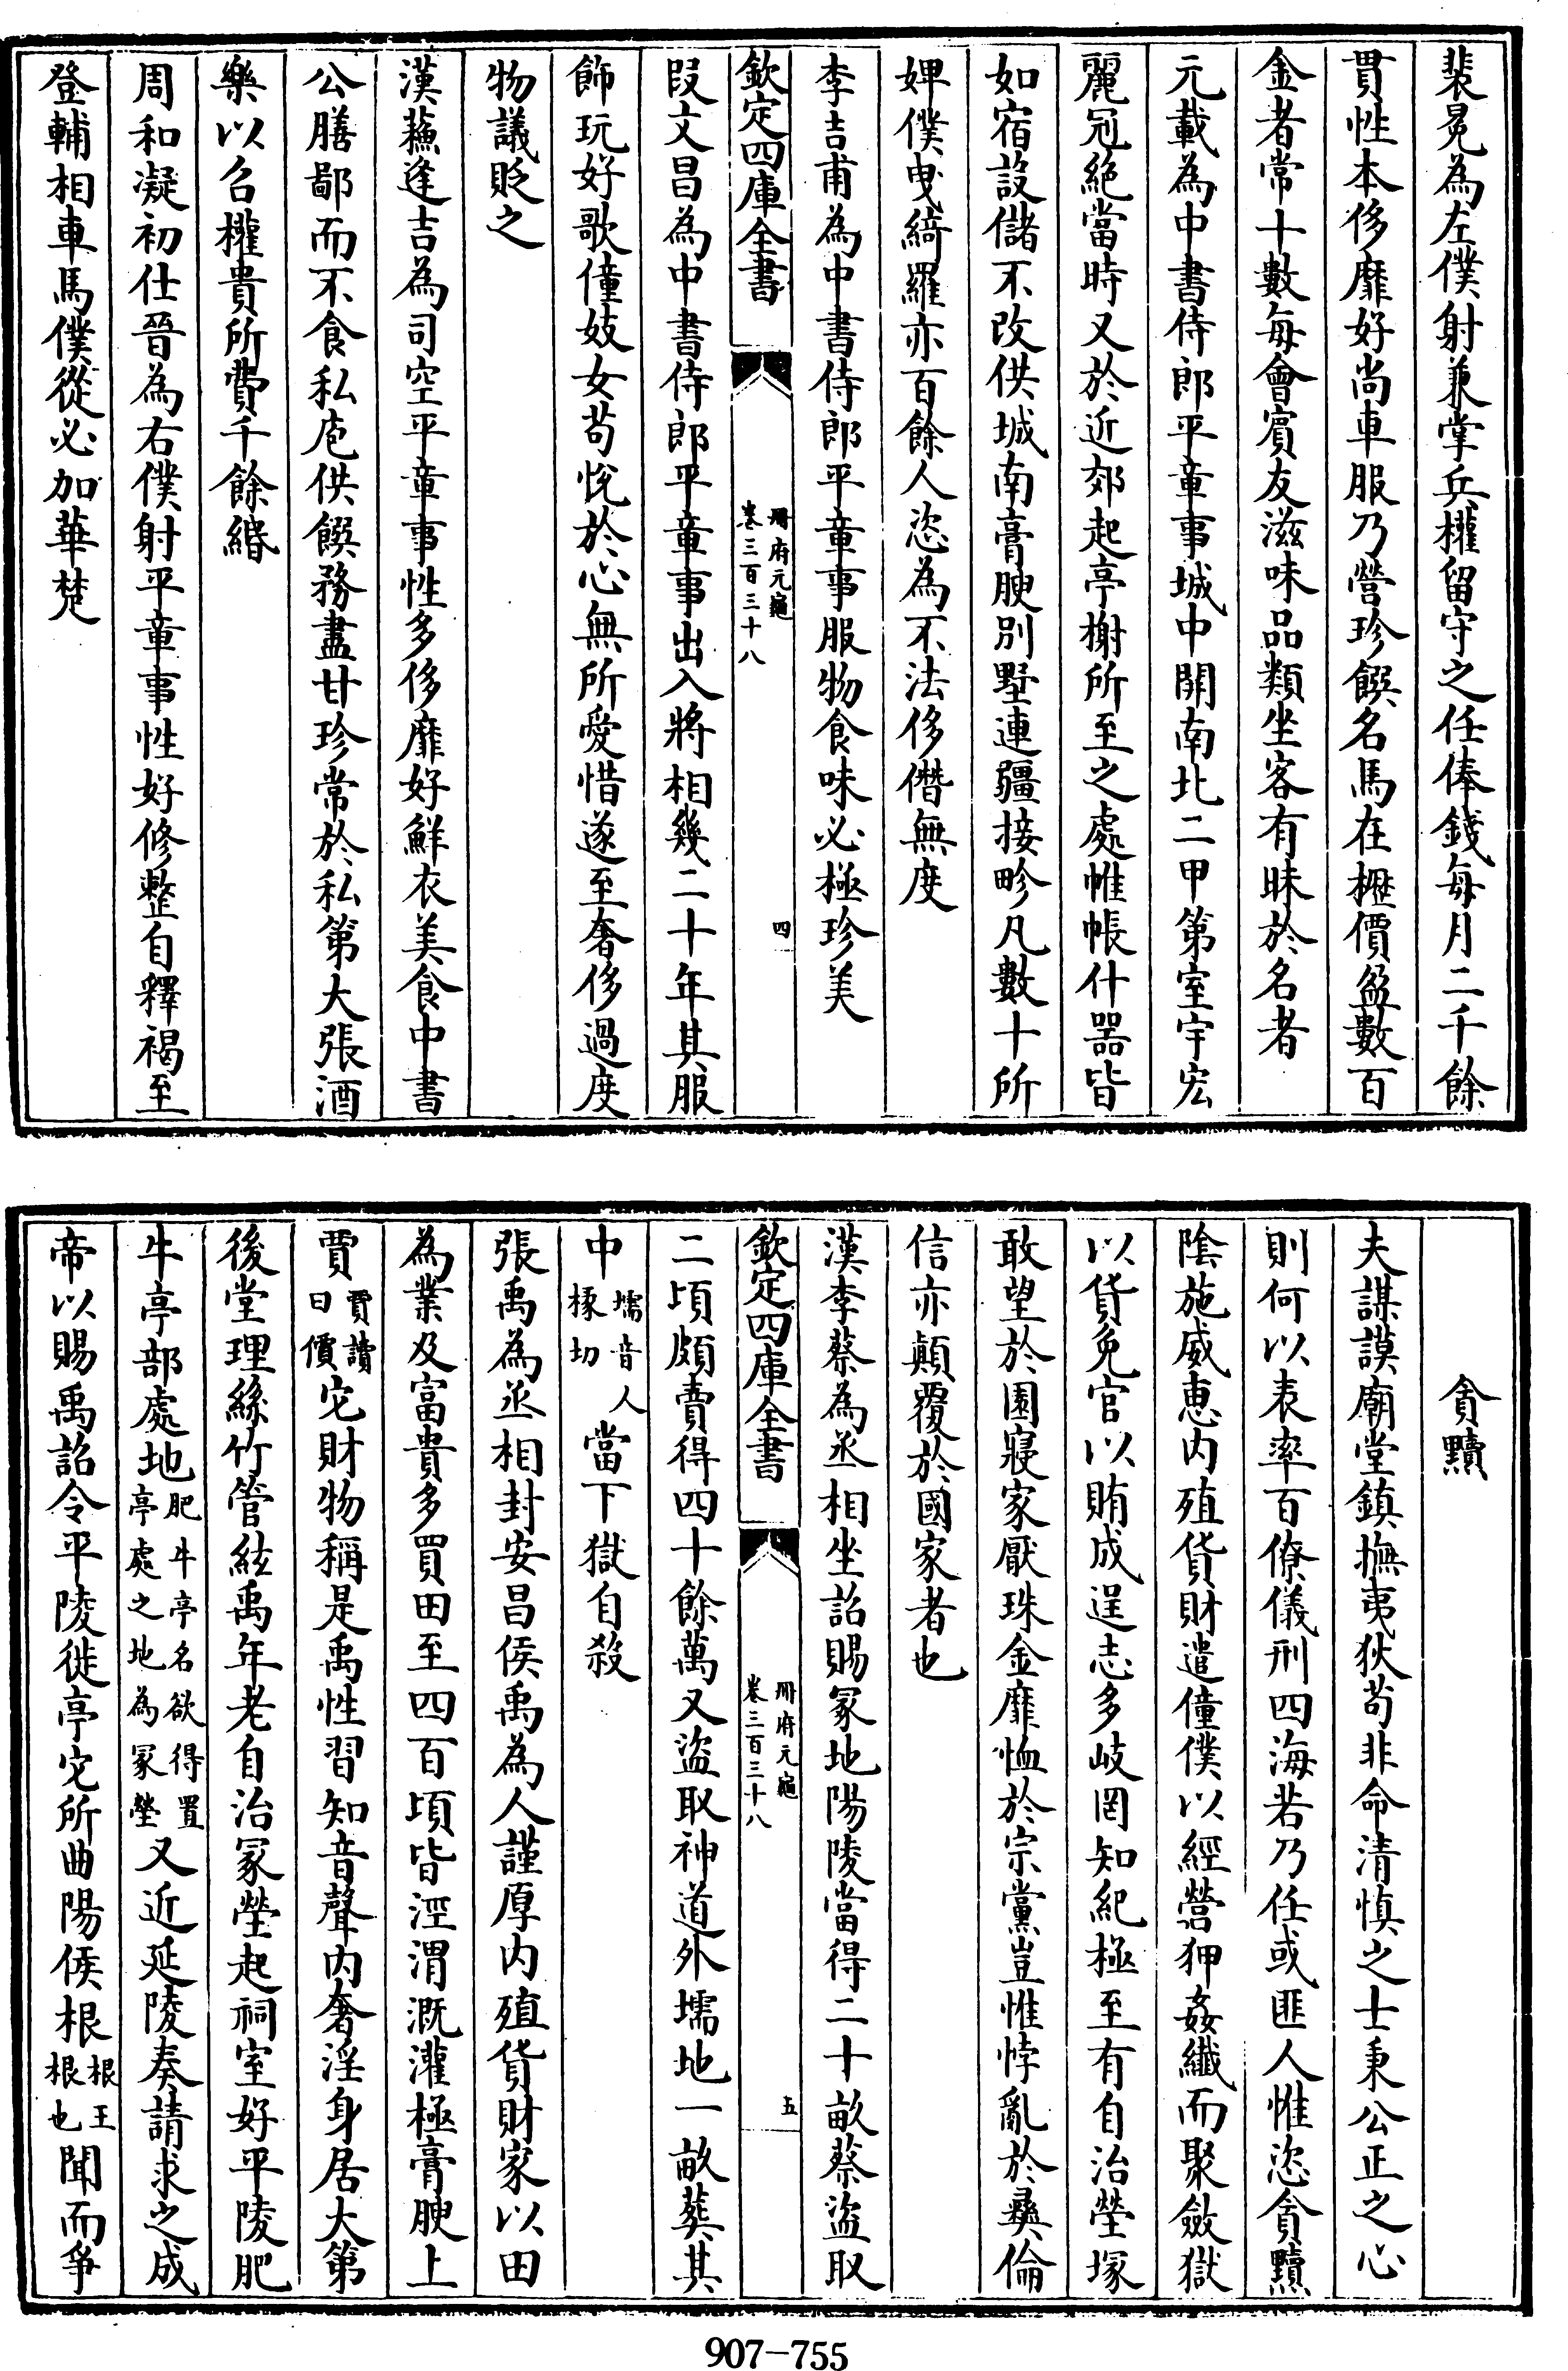 裴冕為左僕射兼掌兵權留守之任俸錢每月二千餘
貫性本侈靡好尚車服乃營珍饌名馬在櫪價盈數百
金者常十數每會賓友滋味品類坐客有昧於名者
元載為中書侍郎平章事城中開南北二甲第室宇宏
麗冠絶當時又於近郊起亭榭所至之處帷帳什器皆
如宿設儲不改供城南膏腴別墅連疆接畛凡數十所
婢僕曳綺羅亦百餘人恣為不法侈僭無度
李吉甫為中書侍郎平章事服物食味必極珍美
欽定四庫全書
冊府元龜
卷三百三十八
四
段文昌為中書侍郎平章事出入將相幾二十年其服
飾玩好歌僮妓女苟悅於心無所愛惜遂至奢侈過度
物議貶之
漢蘓逢吉為司空平章事性多侈靡好鮮衣美食中書
公膳鄙而不食私庖供饌務盡甘珍常於私第大張酒
樂以召權貴所費千餘緡
周和凝初仕晉為右僕射平章事性好修整自釋褐至
登輔相車馬僕從必加華楚
貪黷
夫謀謨廟堂鎮撫夷狄苟非命清慎之士秉公正之心
則何以表率百僚儀刑四海若乃任或匪人惟恣貪黷
陰施威惠内殖貨財遣僮僕以經營狎姦纖而聚斂獄
以貨免官以賄成逞志多岐罔知紀極至有自治塋塚
敢望於園寢家厭珠金靡恤於宗黨豈惟悖亂於彞倫
信亦顛覆於國家者也
漢李蔡為丞相坐詔賜冢地陽陵當得二十畝蔡盜取
欽定四庫全書
冊府元龜
卷三百三十八
五
二頃頗賣得四十餘萬又盜取神道外壖地一畝葬其
中壖音人椽切當下獄自殺
張禹為丞相封安昌侯禹為人謹厚内殖貨財家以田
為業及富貴多買田至四百頃皆涇渭溉灌極膏腴上
賈賈讀曰價它財物稱是禹性習知音聲内奢淫身居大第
後堂理絲竹管絃禹年老自治冢塋起祠室好平陵肥
牛亭部處地肥牛亭名欲得置亭處之地為冢塋又近延陵奏請求之成
帝以賜禹詔令平陵徙亭它所曲陽侯根根王根也聞而爭
907-755